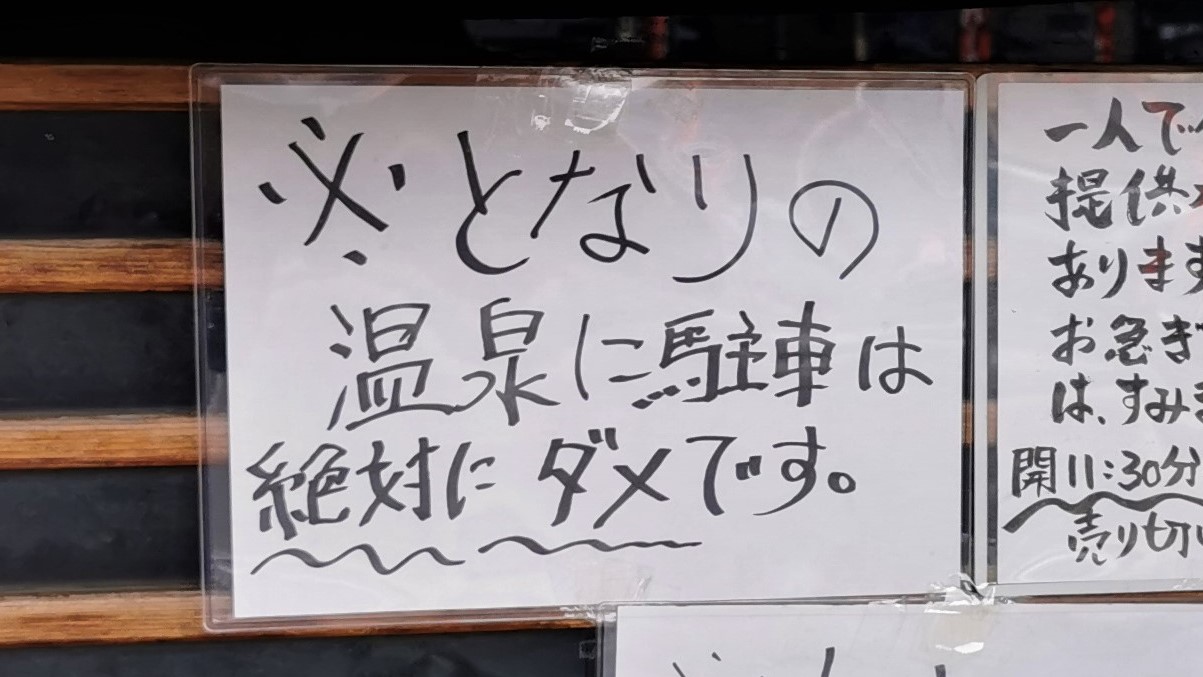 ※となりの
温泉に駐車は
絶対にダメです。
一人で
提供
あります
お急ぎ
は、すみま
開11:30分
売り切